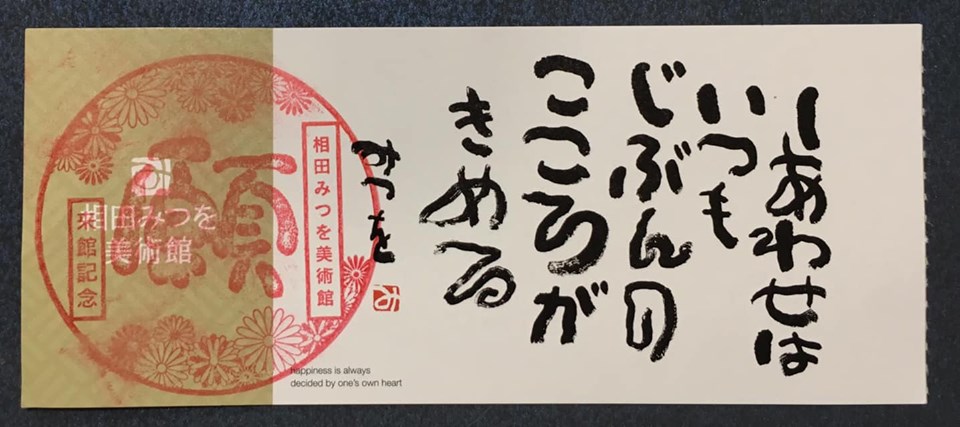 しあわせは
いつも
じぶんの
こころが
きめる
みつを
み
happiness is always
decided by one's own heart
相田みつを美術館
願
来館記念
み
相田みつを
美術館